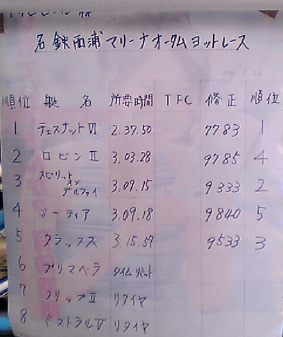 名鉄西浦マリーナオータムヨットレース
順位 艇名 所要時間 TFC 修正 順位
1 チェスナットⅥ 2.37.50 7783 1
2 ロビンⅡ 3.03.28 9785 4
3 スピリット オブ デルファイ 3.09.15 9333 2
4 ミーティア 3.09.18 9840 5
5 クラックス 3.15.57 9533 3
6 プリマベーラ タイムリミット
7 クリップⅡ リタイヤ
8 リタイヤ